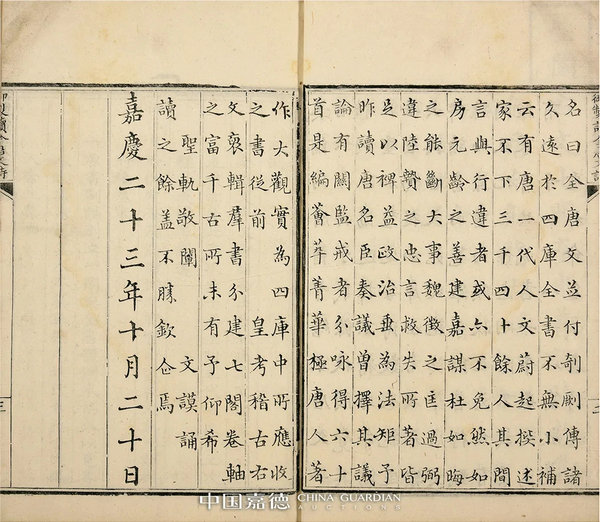 名曰全唐文並付剞劂傳諸
久遠於四庫全書不無小補
云有唐一代人文蔚起撰述
家不下三千四十餘人其間
言與行違者或亦不免然如
房元齡之善建嘉謀杜如晦
之能斷大事魏徵之匡過弼
違陸贄之忠言救失所著皆
足以裨益政治垂為法矩予
昨讀唐名臣奏議曾擇其議
論有關監戒者分咏得六十
首是編薈萃菁華極唐人著
作大觀實為四庫中所應收
之書從前 皇考稽古右
文裒輯羣書分建七閣卷軸
之富千古所未有予仰希
聖軌敬闡 文謨誦
讀之餘盖不勝欽企焉
嘉慶二十三年十月二十日
中国嘉德 CHINA GUARDIAN
AUCTIONS